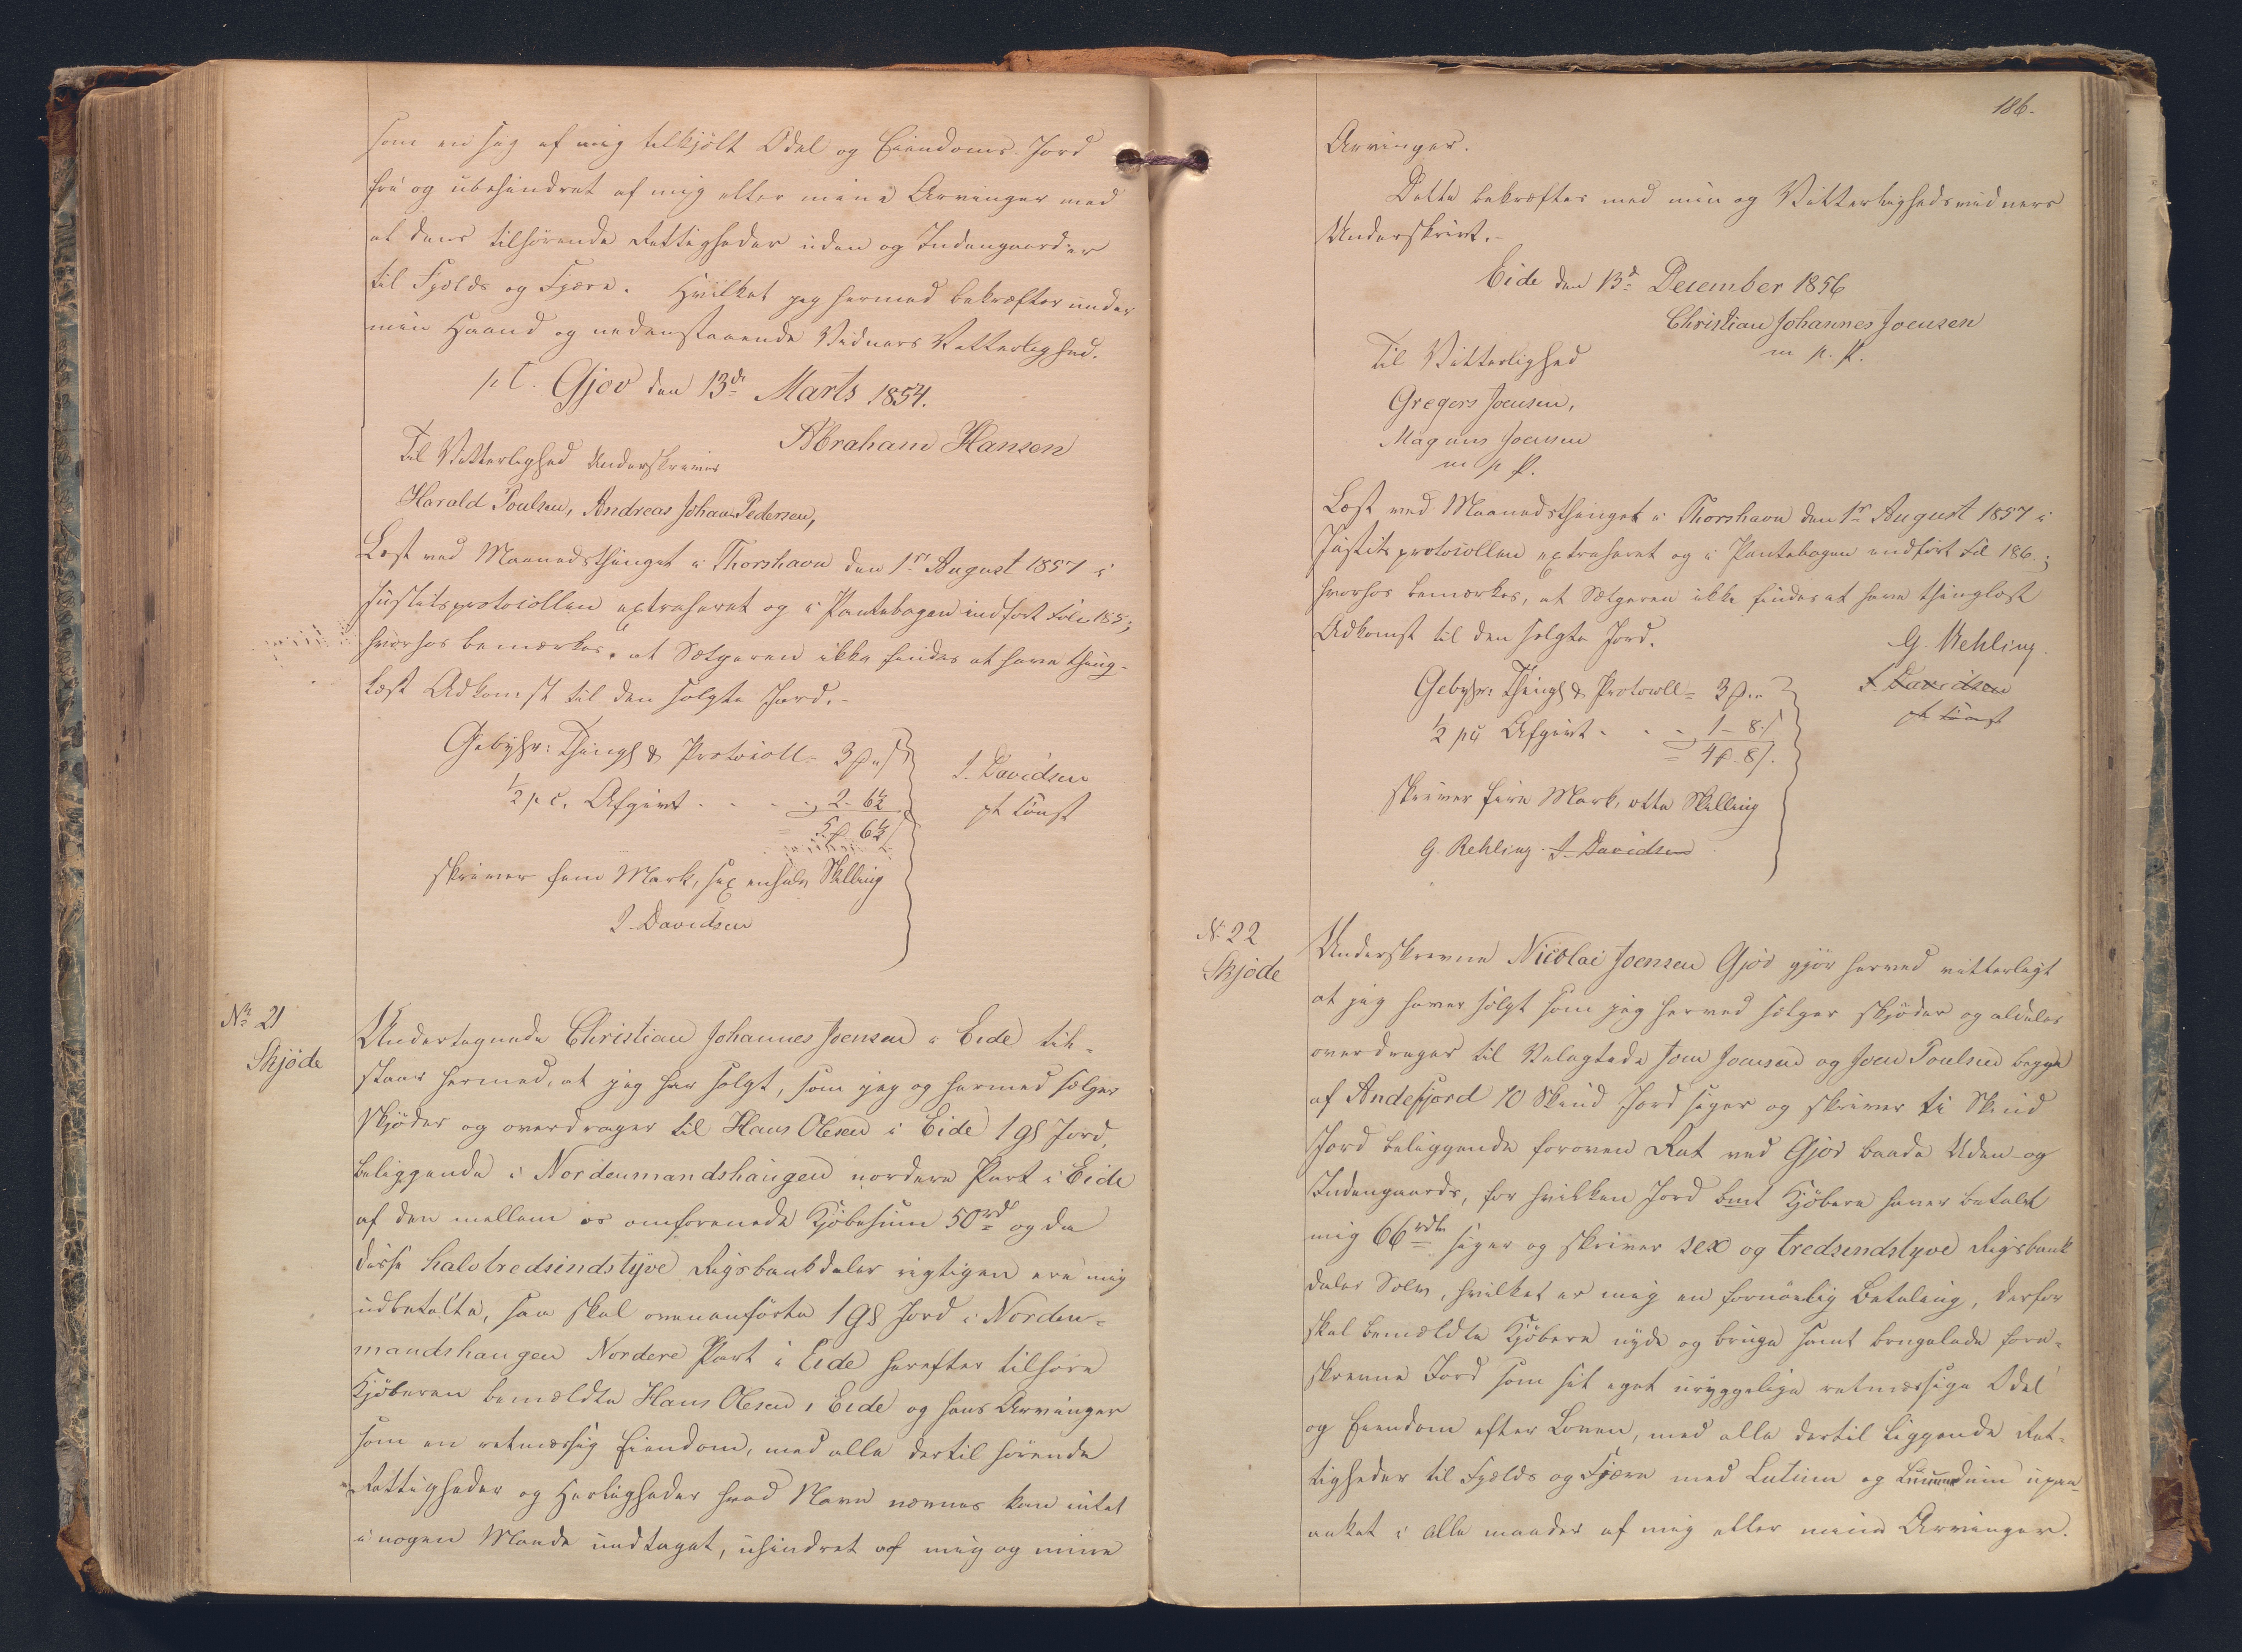 som en sag af mig tilkjølt Odel og Eiendoms-Jord
fri og ubehindret af mig eller mine Arvinger med
al dens tilhørende Rettigheder uden og Indengaardser
til Fjelds og Fjære. Hvilket jeg hermed bekræfter under
min Haand og nedenstaaende Vidners Vitterlighed.
pt. Gjov den 13de Marts 1854.
Abraham Hansen
Til Vitterlighed Underskriver
Harald Poulsen, Andreas Johan Pedersen,
Læst ved Maanedsthinget i Thorshavn den 1ste August 1857 i
Justitsprotocollen extraheret og i Pantebogen indført Folio 185;
hvorhos bemærkes, at Sælgeren ikke findes at have thing-
læst Adkomst til den solgte Jord.-
Gebyhr: Thingl & Protocoll = 3 ß
½ p C. Afgivt - - - 2 - 6½
= 5 ß 6½
J. Davidsen
pt const
skriver fem Mark, sex enhalv Skilling
J. Davidsen
No 21
Skjöde
Undertegnede Christian Johannes Joensen i Eide til-
staar hermed, at jeg har solgt, som jeg og hermed sælger
skjøder og overdrager til Hans Olesen i Eide 1 Gl Jord,
beliggende i Nordenmandshaugen nordere Part i Eide
af den mellem os omforenede Kjøbesum 50rd og da
disse halvtredsindstyve Rigsbankdaler rigtigen ere mig
udbetalte, saa skal ovenanførte 1 Gl Jord i Norden-
mandshaugen Nordere Part i Eide herefter tilhøre
Kjøberen bemældte Hans Olesen i Eide og hans Arvinger
som en retmæssig Eiendom, med alle dertil hørende
Rettigheder og Herligheder hvad Navn nævnes kan intet
i nogen Maade undtaget, uhindret af mig og mine
186.
Arvinger.
Dette bekræftes med min og Vitterlighedsvidners
Underskrivt.-
Eide den 13de December 1856
Christian Johannes Joensen
m p. p.
Til Vitterlighed
Gregers Joensen,
Magnus Joensen
m p p.
Læst ved Maanedsthinget i Thorshavn den 1ste August 1857 i
Justitsprotocollen extraheret og i Pantebogen indført Fol 186.;
hvorhos bemærkes, at Sælgeren ikke findes at have thinglæst
Adkomst til den solgte Jord.
G. Rehling.
J. Davidsen
pt const
Gebyhr: Thingl & Protocoll = 3 ß
½ p C Afgivt - - - 1 - 8 ß
= 4 ß 8 ß.
skriver fire Mark, otte Skilling
G. Rehling. J. Davidsen
No 22
Skjöde
Underskrevne Nicolai Joensen Gjov gjør herved vitterligt
at jeg haver solgt som jeg herved sælger skjøder og aldeles
overdrager til Velagtede Joen Joensen og Joen Poulsen begge
af Andefjord 10 Skind Jord siger og skriver ti Skind
Jord beliggende foroven Ret ved Gjov baade Uden- og
Indengaards, for hvilken Jord bemt Kjøbere haver betalt
mig 66 rdlr siger og skriver sex og tredsindstyve Rigsbank
daler Sølv, hvilket er mig en fornøielig Betaling, derfor
skal bemældte Kjøbere nyde og bruge samt beholde fore-
skrevne Jord som sit eget uryggelige retmæssige Odel
og Eiendom efter Loven, med alle dertil liggende Ret-
tigheder til Fjelds og Fjære med Lutum og Lunnendum upaa-
anket i alle maader af mig eller mine Arvinger.